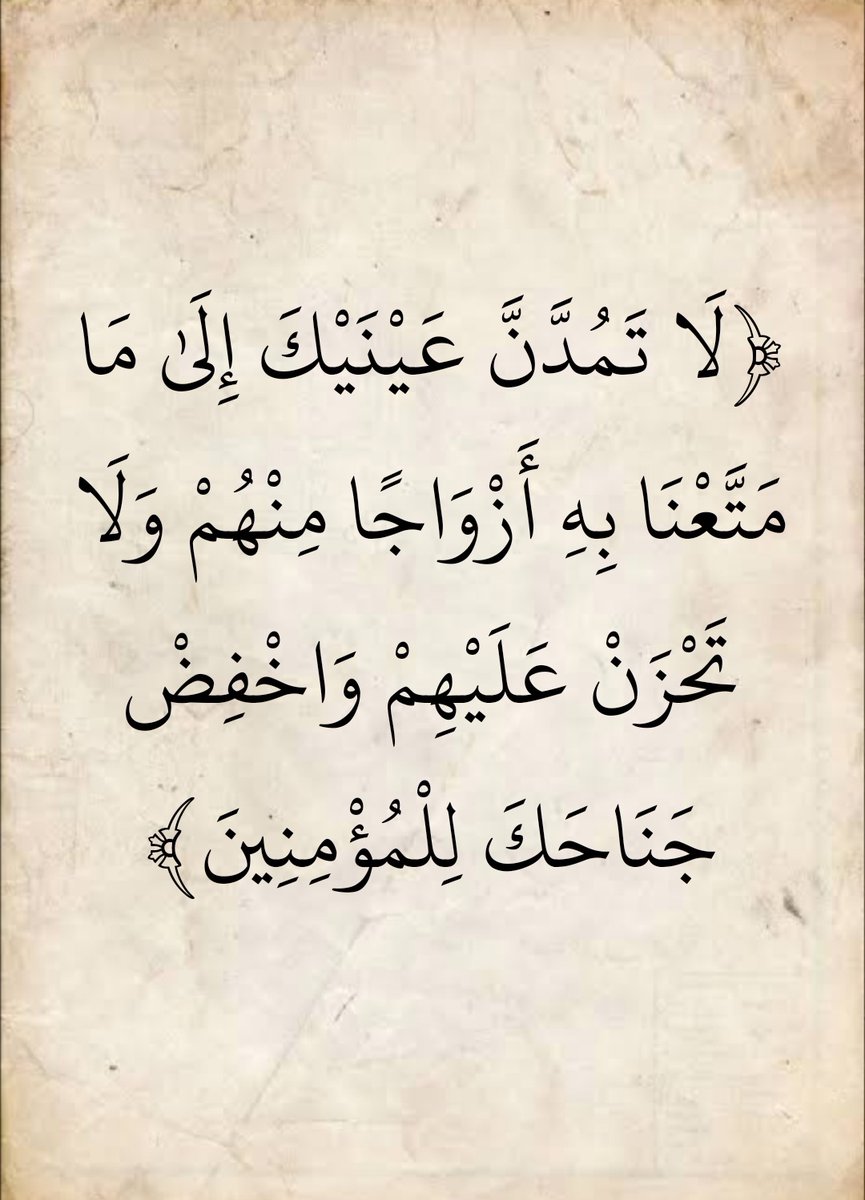 ﴿لَا تَمُدَّنَّ عَيْنَيْكَ إِلَىٰ مَا
مَتَّعْنَا بِهِ أَزْوَاجًا مِنْهُمْ وَلَا
تَحْزَنْ عَلَيْهِمْ وَاخْفِضْ
جَنَاحَكَ لِلْمُؤْمِنِينَ﴾